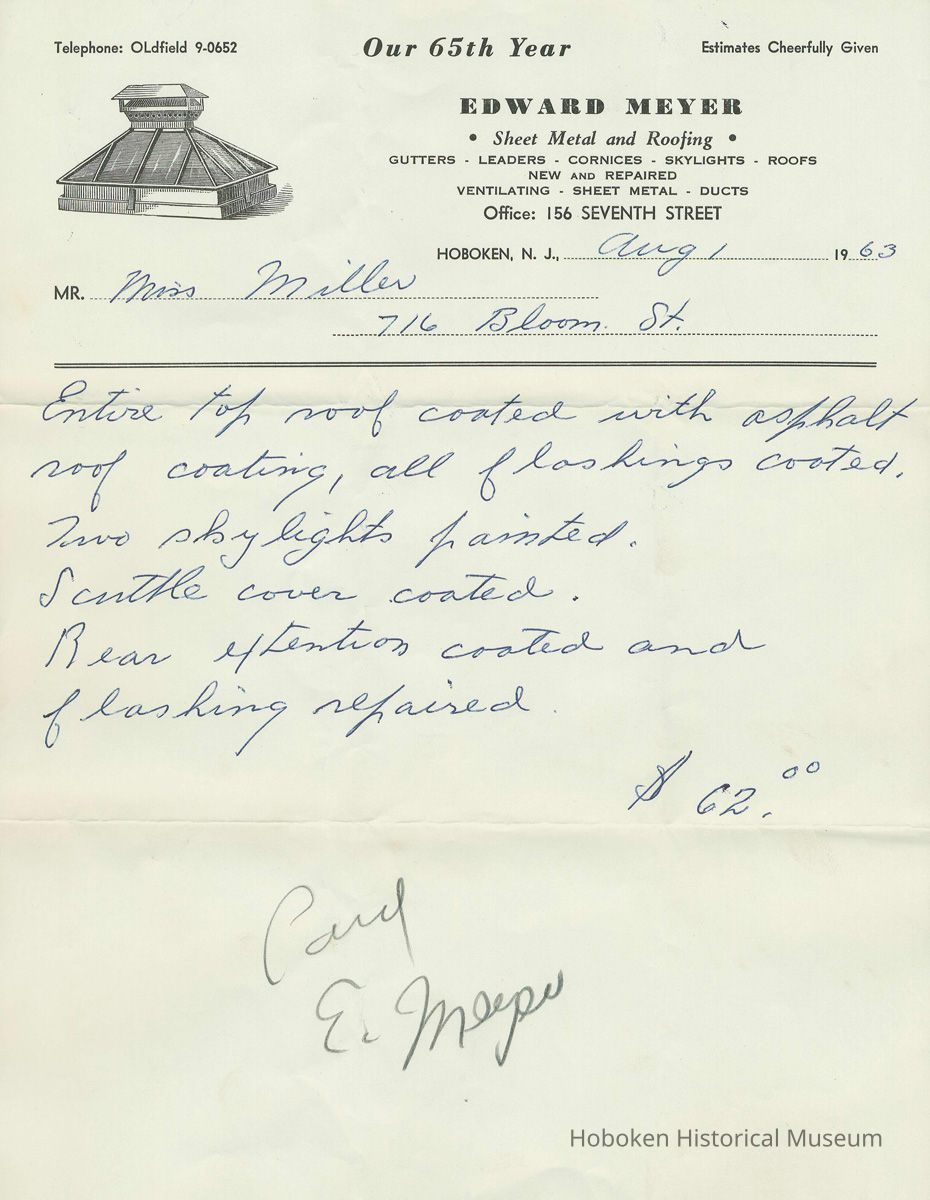 Telephone: OLdfield 9-0652
Our 65th Year
Estimates Cheerfully Given
EDWARD MEYER
• Sheet Metal and Roofing •
GUTTERS - LEADERS - CORNICES - SKYLIGHTS - ROOFS
NEW AND REPAIRED
VENTILATING - SHEET METAL - DUCTS
Office: 156 SEVENTH STREET
HOBOKEN, N. J., Aug 1 1963
MR. Miss Miller
716 Bloom. St.
Entire top roof coated with asphalt
roof coating, all flashings coated.
Two skylights painted.
Scuttle cover coated.
Rear extention coated and
flashing repaired.
$ 62.00
Paid
E. Meyer
Hoboken Historical Museum